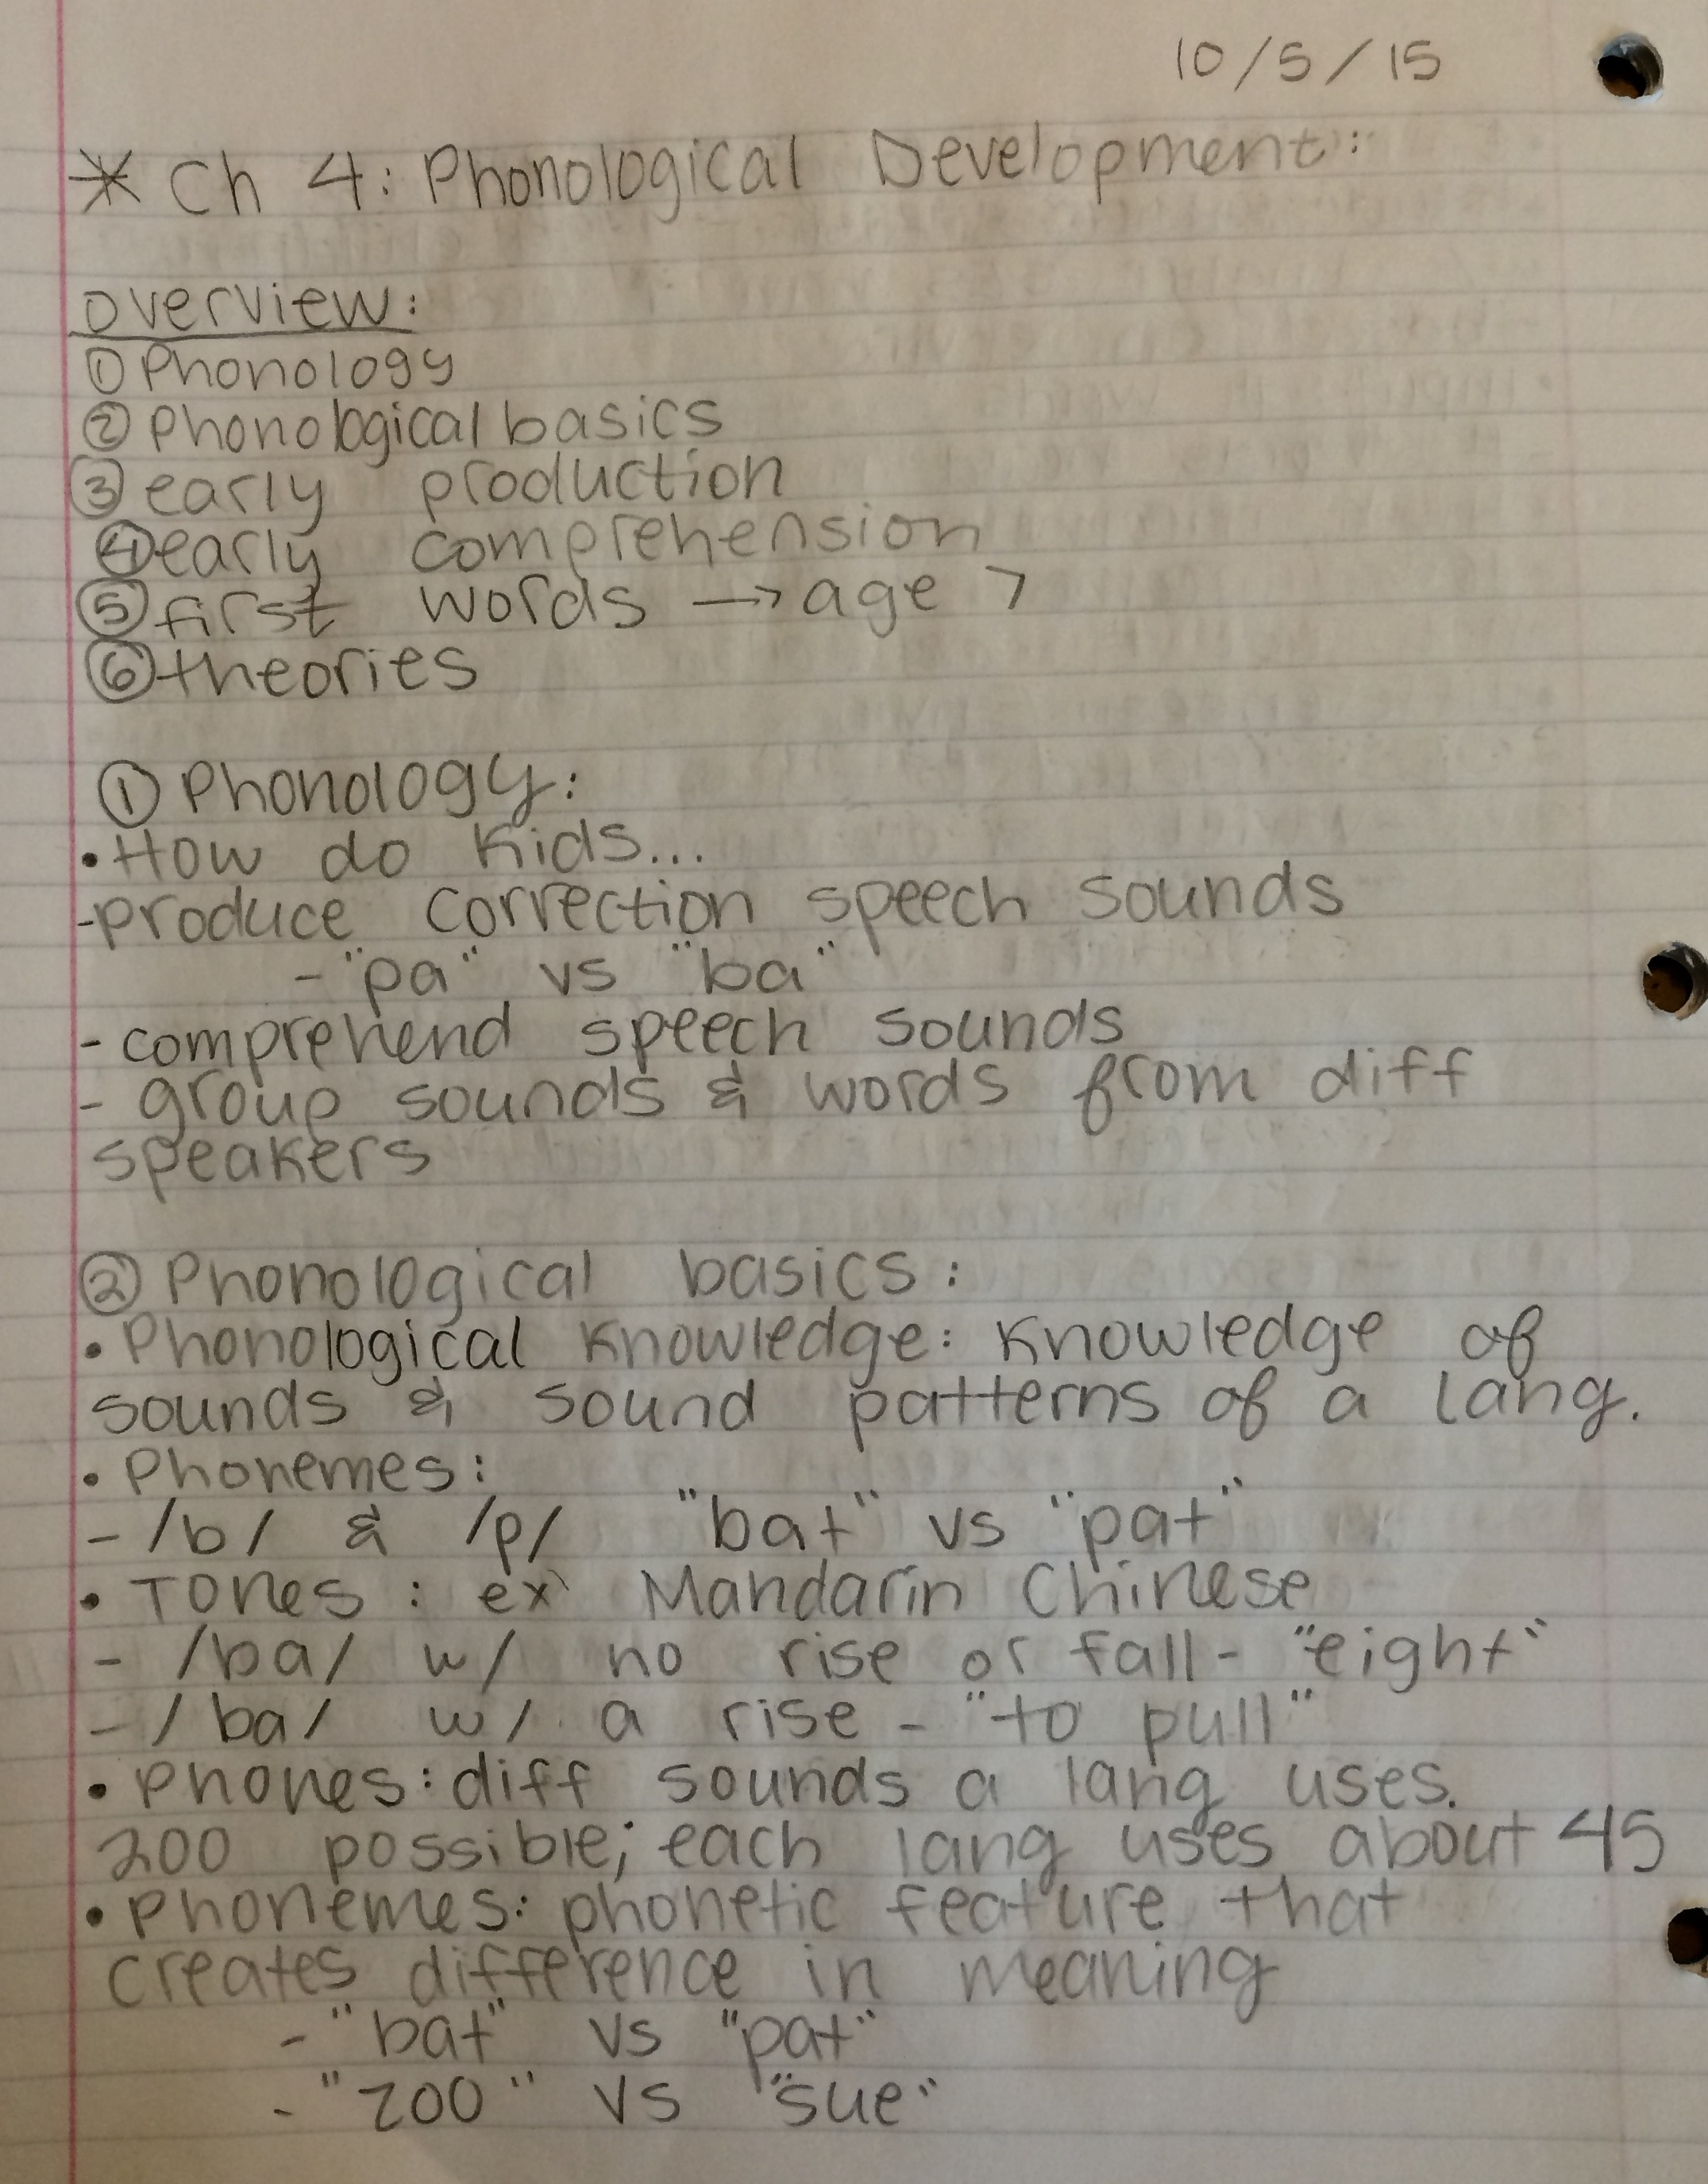 10/5/15
* Ch 4: Phonological Development:
overview:
① Phonology
② Phonological basics
③ early production
④ early comprehension
⑤ first words → age 7
⑥ theories
① Phonology:
• How do kids...
- produce correction speech sounds
- "pa" vs "ba"
- comprehend speech sounds
- group sounds & words from diff
speakers
② Phonological basics:
• Phonological knowledge: knowledge of
sounds & sound patterns of a lang.
• Phonemes:
- /b/ & /p/ "bat" vs "pat"
• Tones: ex Mandarin Chinese
- /ba/ w/ no rise or fall - "eight"
- /ba/ w/ a rise - "to pull"
• Phones: diff sounds a lang uses.
200 possible; each lang uses about 45
• Phonemes: phonetic feature that
creates difference in meaning
- "bat" vs "pat"
- "zoo" vs "sue"